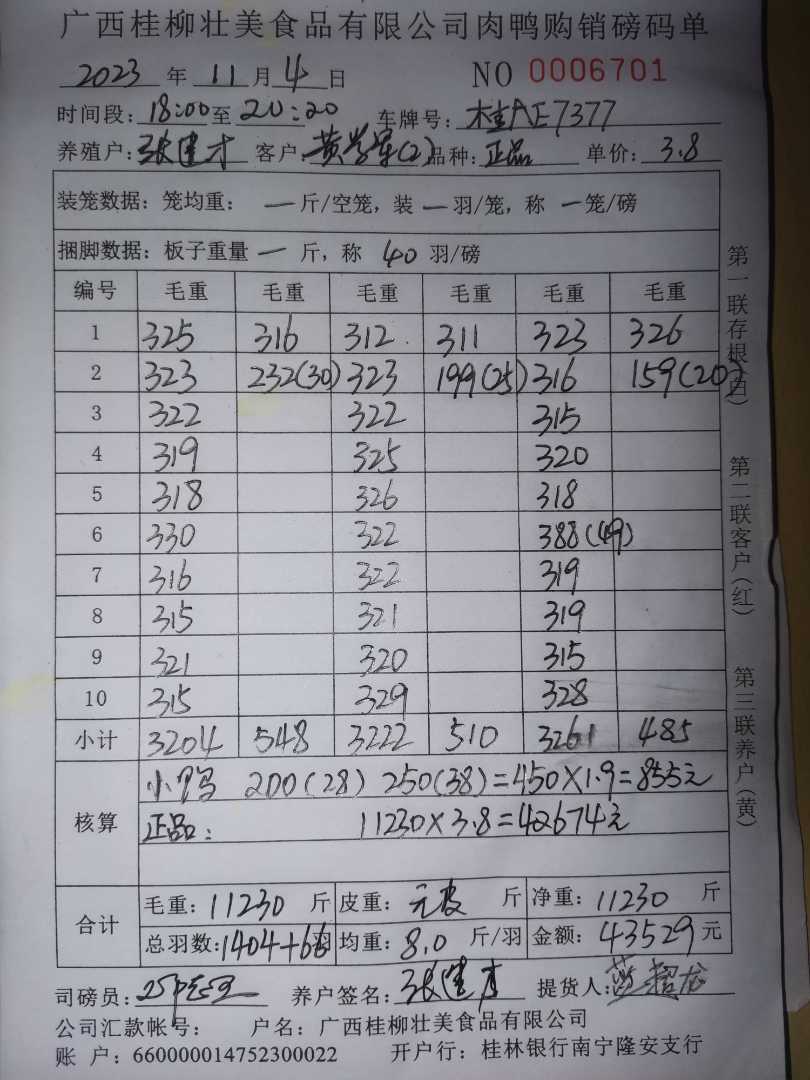 广西桂柳壮美食品有限公司肉鸭购销磅码单
2023 年 11 月 4 日 NO 0006701
时间段: 18:00 至 20:20 车牌号: 桂AE7377
养殖户: 张建才 客户: 黄学军(2) 品种: 正品 单价: 3.8
装笼数据: 笼均重: 一 斤/空笼, 装 一 羽/笼, 称 一 笼/磅
捆脚数据: 板子重量 一 斤, 称 40 羽/磅
编号 毛重 毛重 毛重 毛重 毛重 毛重
1 325 316 312 311 323 326
2 323 232(30) 323 199(25) 316 159(20)
3 322 322 315
4 319 325 320
5 318 326 318
6 330 322 388(49)
7 316 322 319
8 315 321 319
9 321 320 315
10 315 329 328
小计 3204 548 3222 510 3261 485
核算 小鸭 200(28) 250(38)=450×1.9=855元
正品: 11230×3.8=42674元
合计 毛重: 11230 斤 皮重: 元皮 斤 净重: 11230 斤
总羽数: 1404+66 羽 均重: 8.0 斤/羽 金额: 43529 元
司磅员: 养户签名: 张建才 提货人:
公司汇款帐号: 户名: 广西桂柳壮美食品有限公司
账 户: 660000014752300022 开户行: 桂林银行南宁隆安支行
第一联存根(白) 第二联客户(红) 第三联养户(黄)